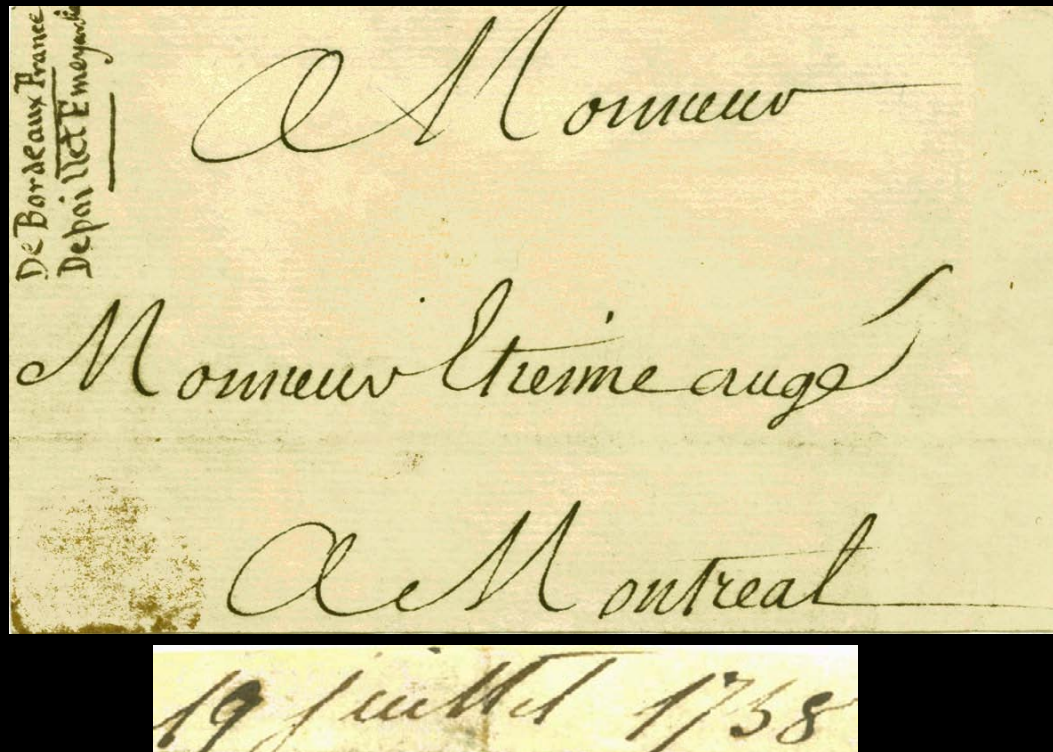 De Bordeaux France
Depaillet Emeyanchi
A Monsieur
Monsieur Etienne augé
A Montreal
19 juillet 1758